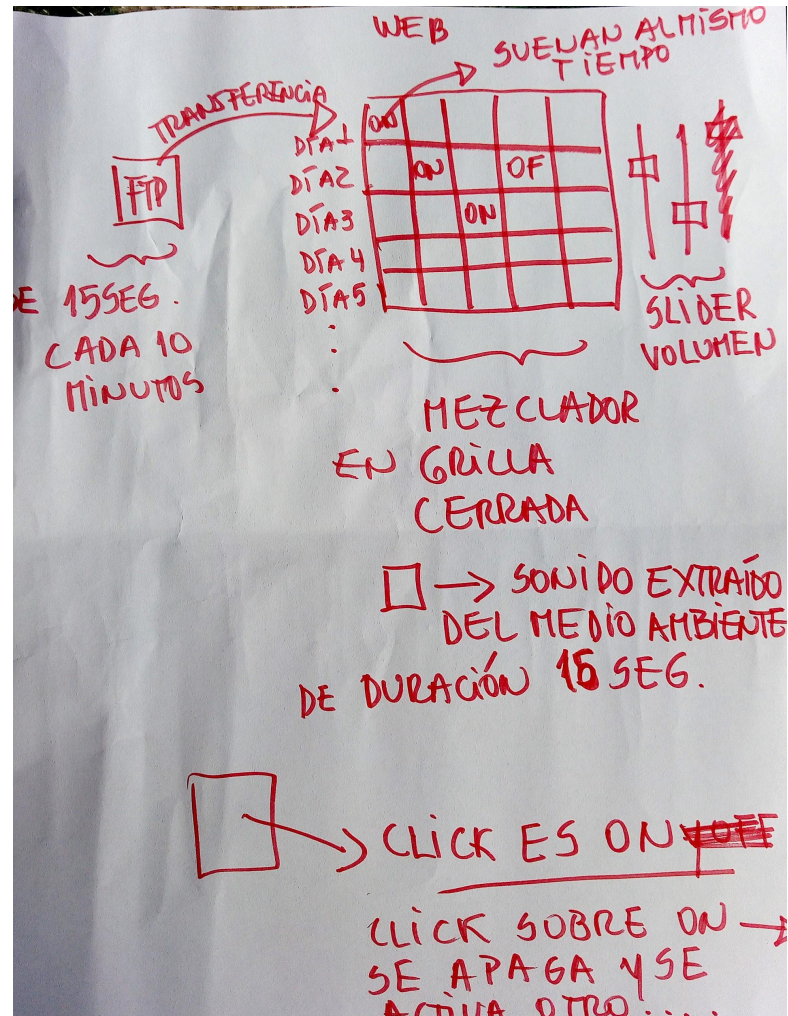 WEB
SUENAN AL MISMO
TIEMPO
TRANSFERENCIA
FTP
DÍA1
DÍA2
DÍA3
DÍA4
DÍA5
ON
ON
OF
ON
E 15SEG.
CADA 10
MINUTOS
SLIDER
VOLUMEN
MEZCLADOR
EN GRILLA
CERRADA
SONIDO EXTRAÍDO
DEL MEDIO AMBIENTE
DE DURACIÓN 15 SEG.
CLICK ES ON
CLICK SOBRE ON
SE APAGA Y SE
ACTIVA OTRO....